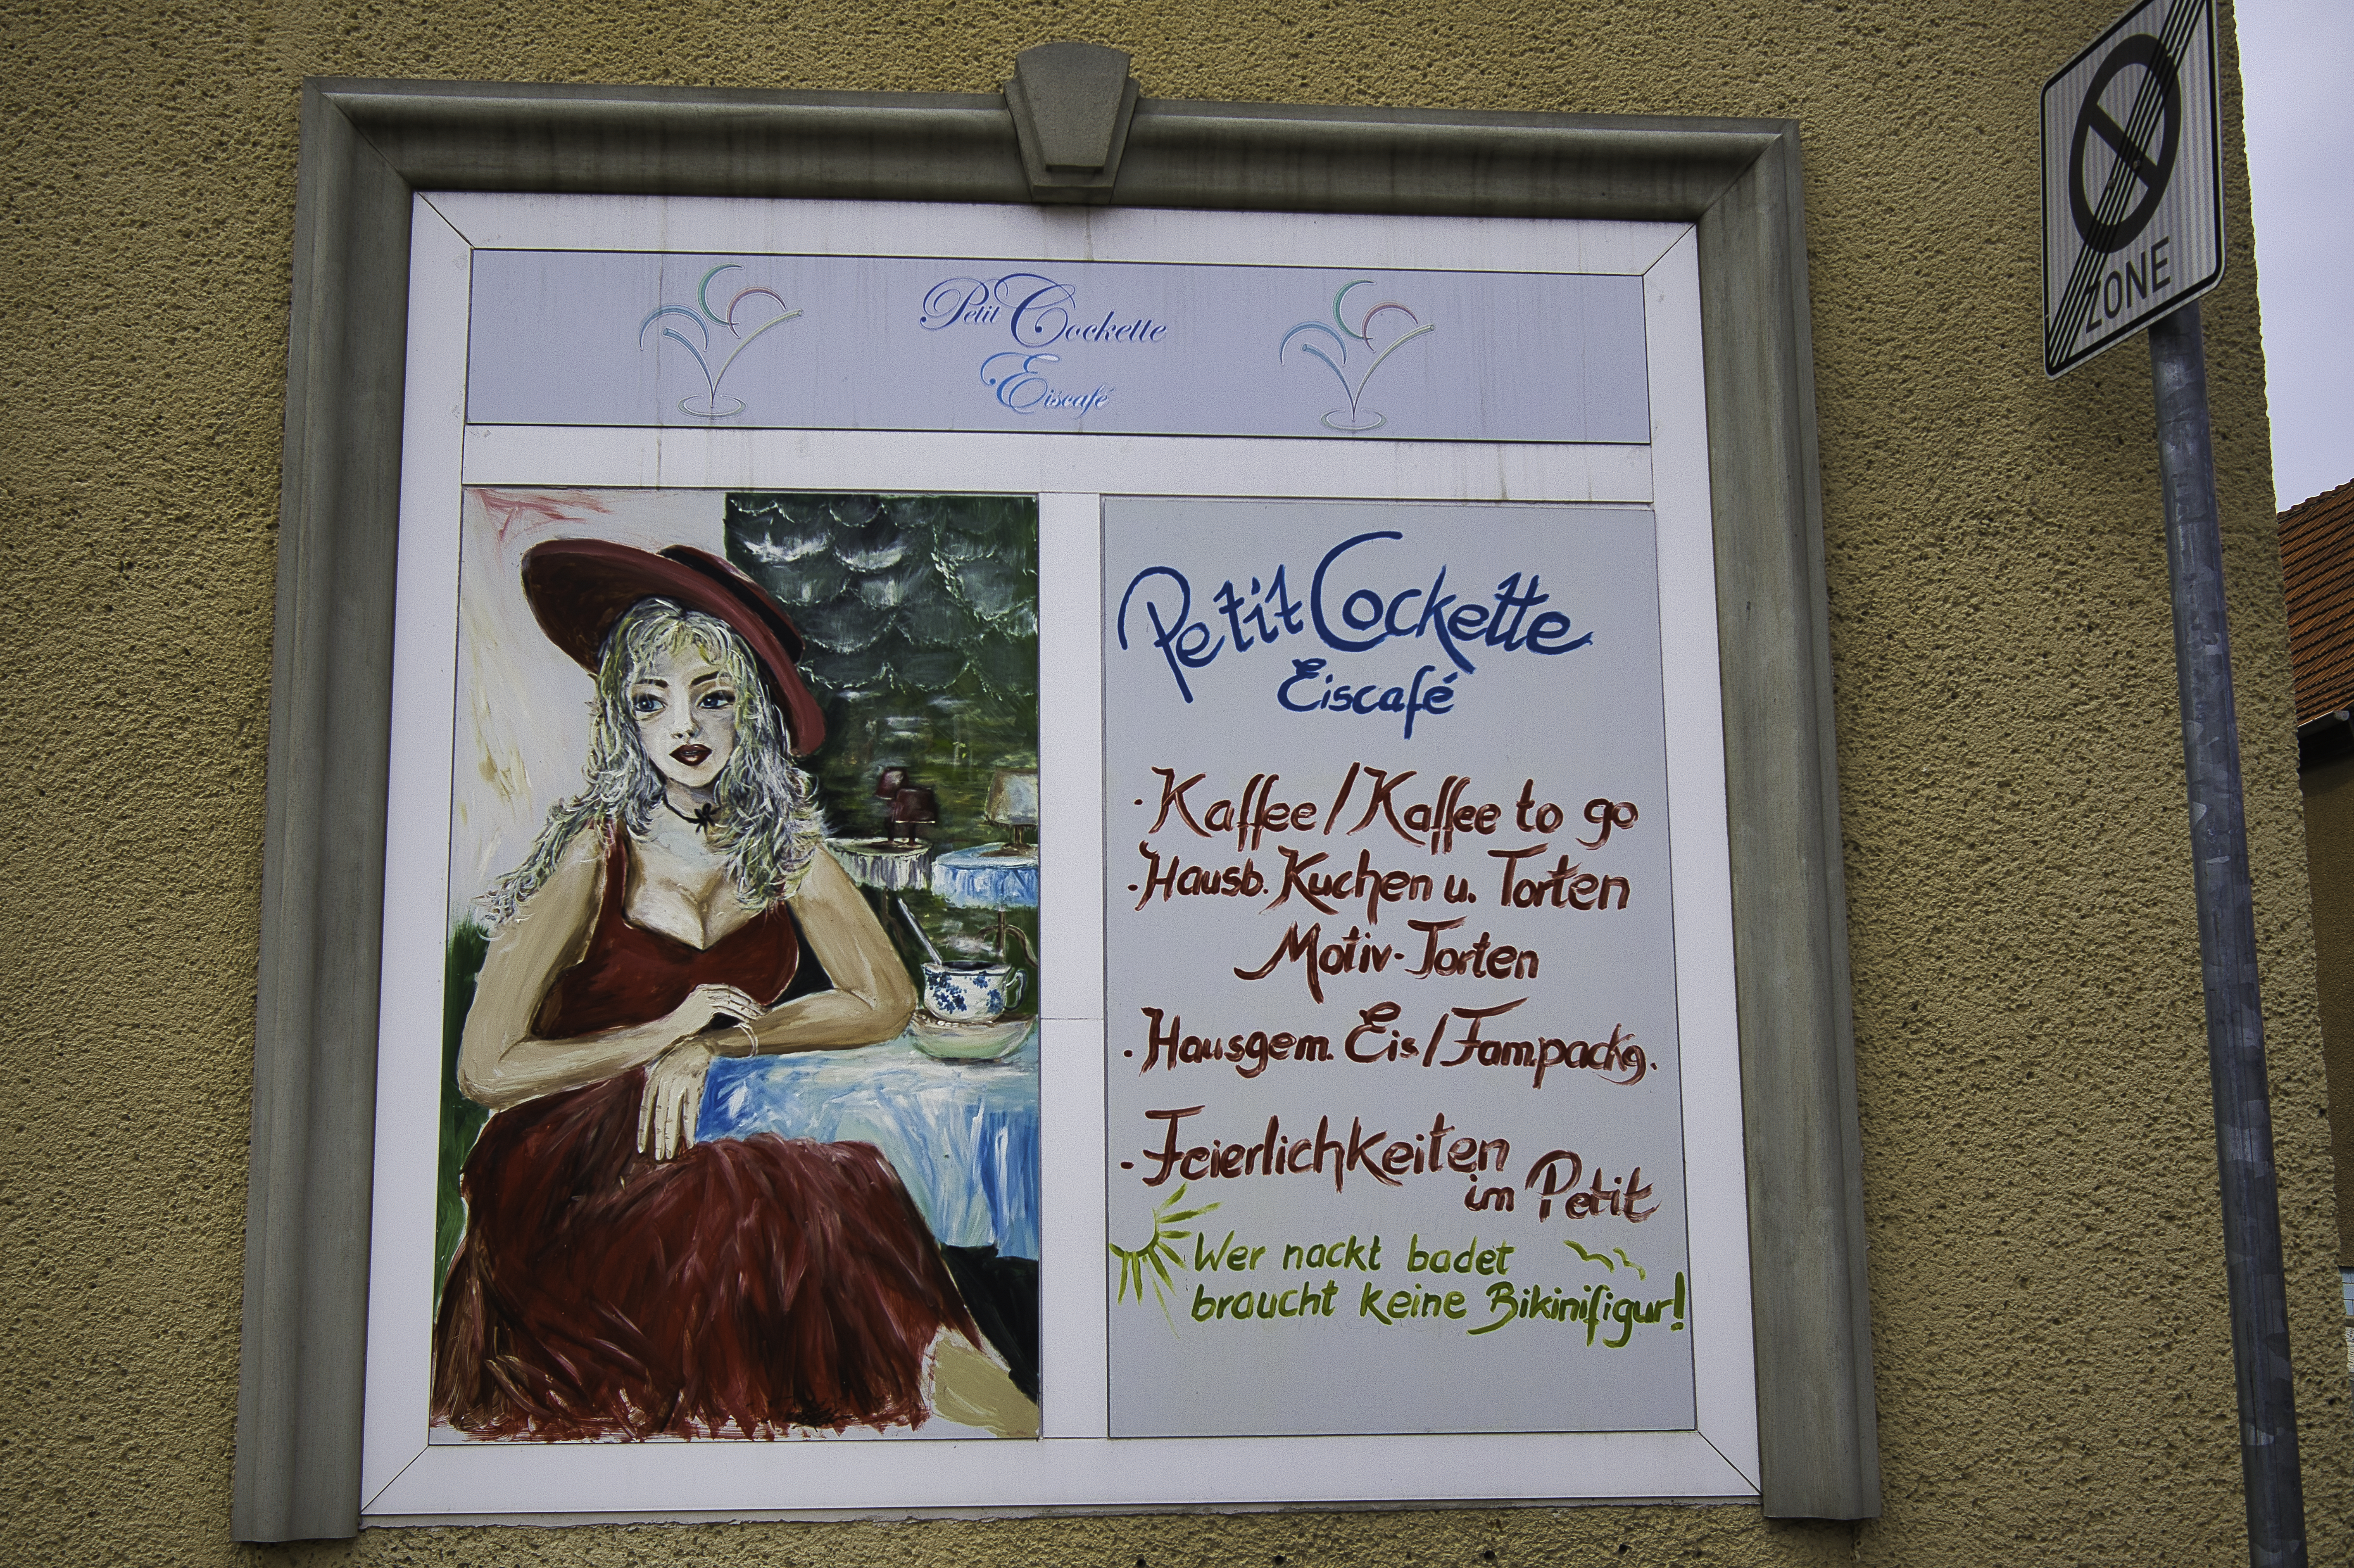 Petit Cockette
Eiscafé
Petit Cockette
Eiscafé
· Kaffee / Kaffee to go
· Hausb. Kuchen u. Torten
Motiv-Torten
· Hausgem. Eis / Fam.packg.
· Feierlichkeiten
im Petit
Wer nackt badet
braucht keine Bikinifigur!
ZONE